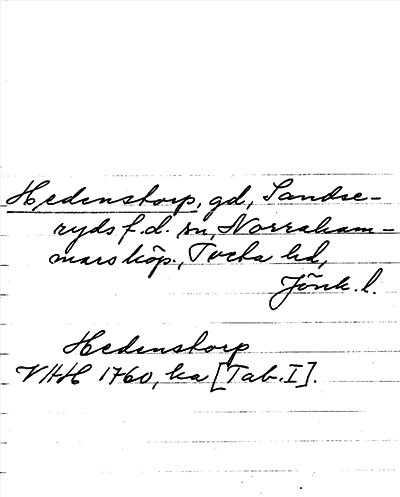 Hedenstorp, gd, Sandse-
ryds f.d. sn, Norraham-
mars köp., Tveta hd,
Jönk. l.
Hedenstorp
VAH 1760, ka [Tab. I].